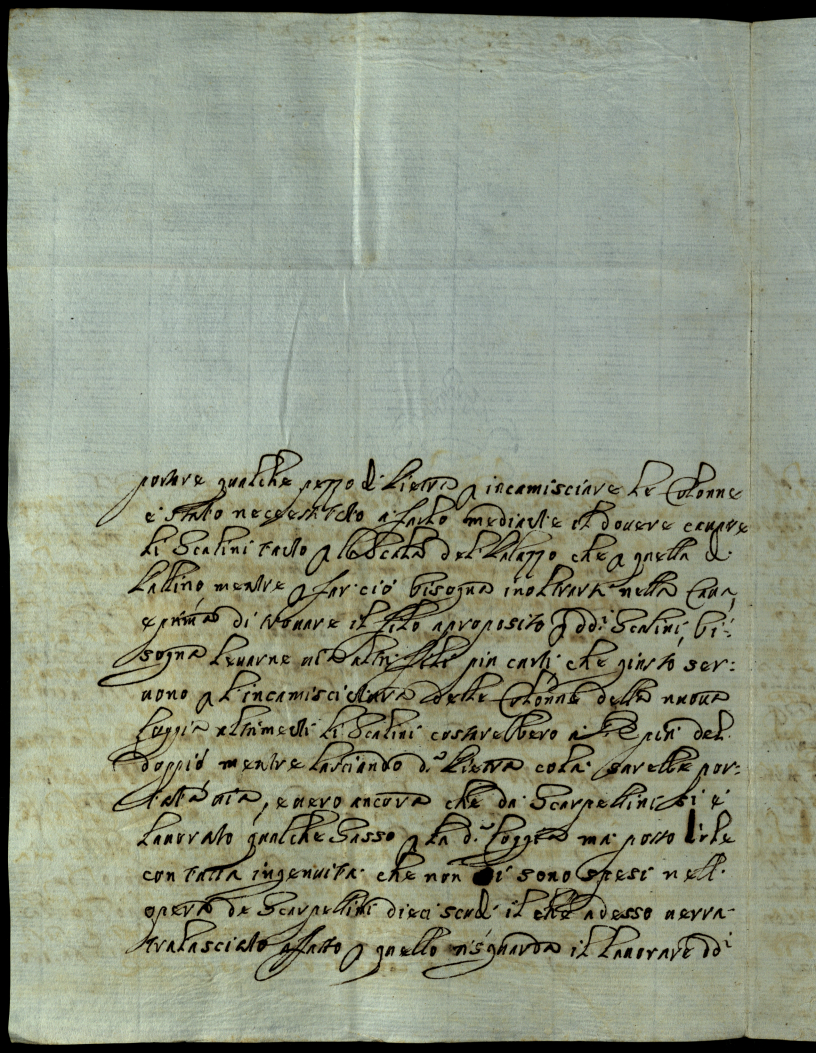 portare qualche pezzo di Pietra p incamisciare le Colonne
e stato necessitato a farlo mediante il dovere cavare
li Scalini tanto p la Scala del Palazzo che p quella di
mentre p far ciò bisogna inoltrarsi nella Cava,
e prima di trovare il filo aproposito p dd.i Scalini, bi:
sogna levarne via altri fili piu carti che giusto ser:
vono p l'incamisciatura delle Colonne della nuova
Loggia altrimenti li Scalini costarebbero a piu del
doppio mentre lasciando d.a Pietra colà sarebbe por:
tata via, e vero ancora che da Scarpellini si è
lavorato qualche Sasso p la d.a Loggia ma posso dirle
con tutta ingenuità che non si sono spesi nell
opera de Scarpellini dieci scudi il che adesso verra
tralasciato affatto p quello risguarda il lavorare dd.i